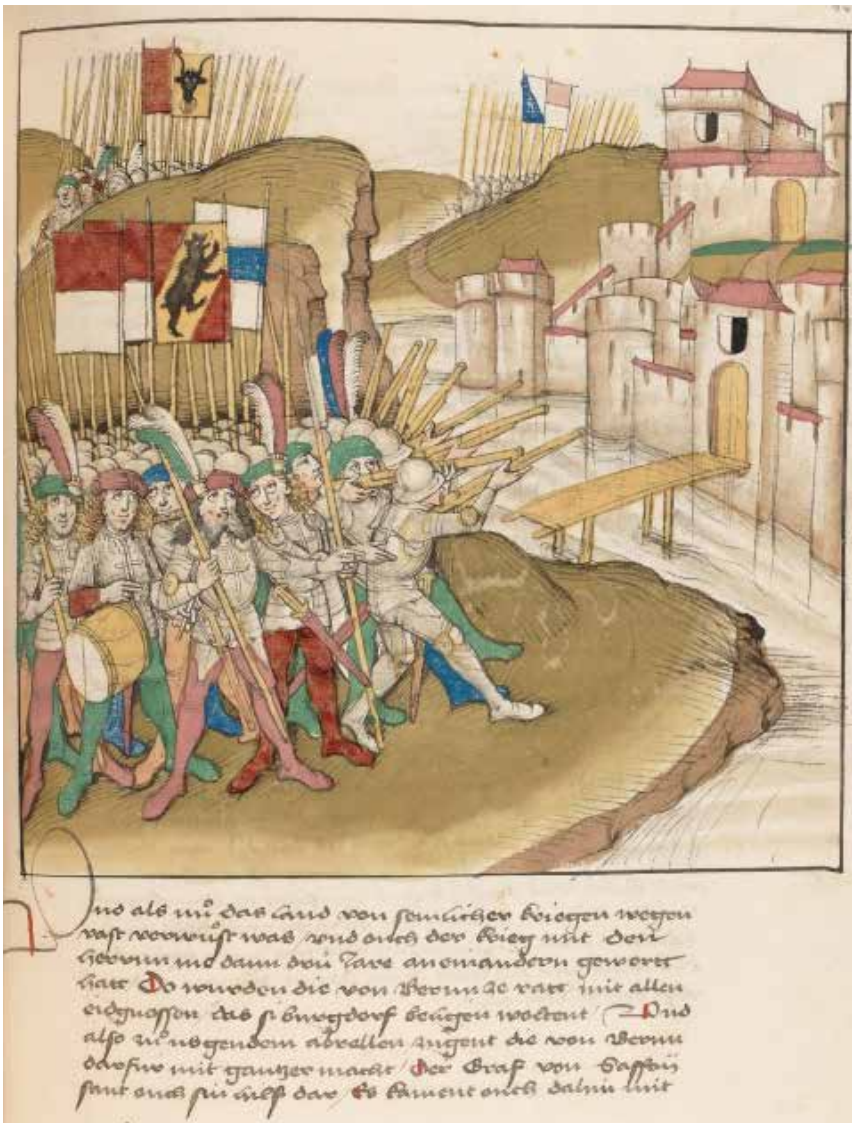 Und als nů das land von semlicher kriegen wegen
vast verwůst was / und ouch der krieg mit den
herrnn me dann drú Jare aneinandern gewert
hatt Do wurden die von Bernn ze ratt mit allen
eidgnossen das si burgdorf beligen woltent / Und
also zů usgendem abrellen zugent die von Bernn
darfúr mit gantzer macht / Der Graf von Saffoÿ
sant ouch sin hilf dar / Es kament ouch dahin mit